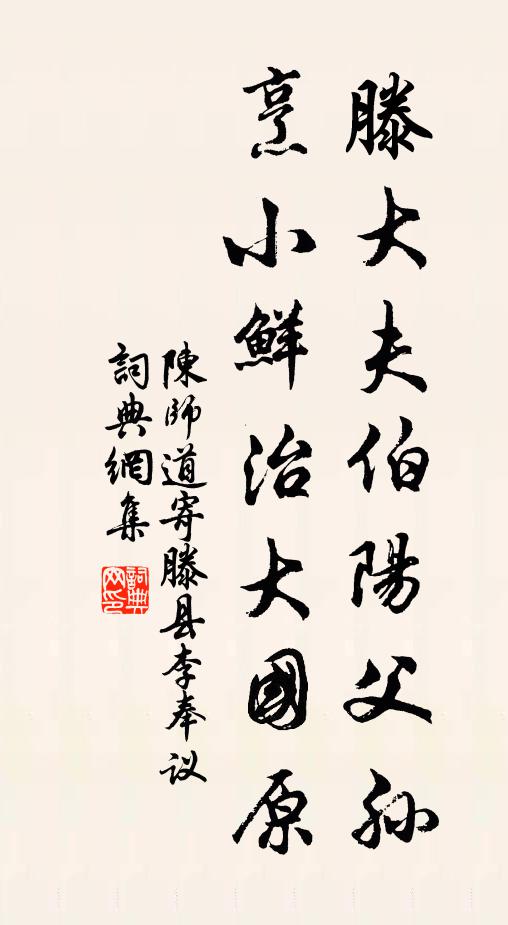 滕大夫伯陽父孙
烹小鮮治大國原
陳师道寄滕县李奉议
詞典網集
詞典
网印